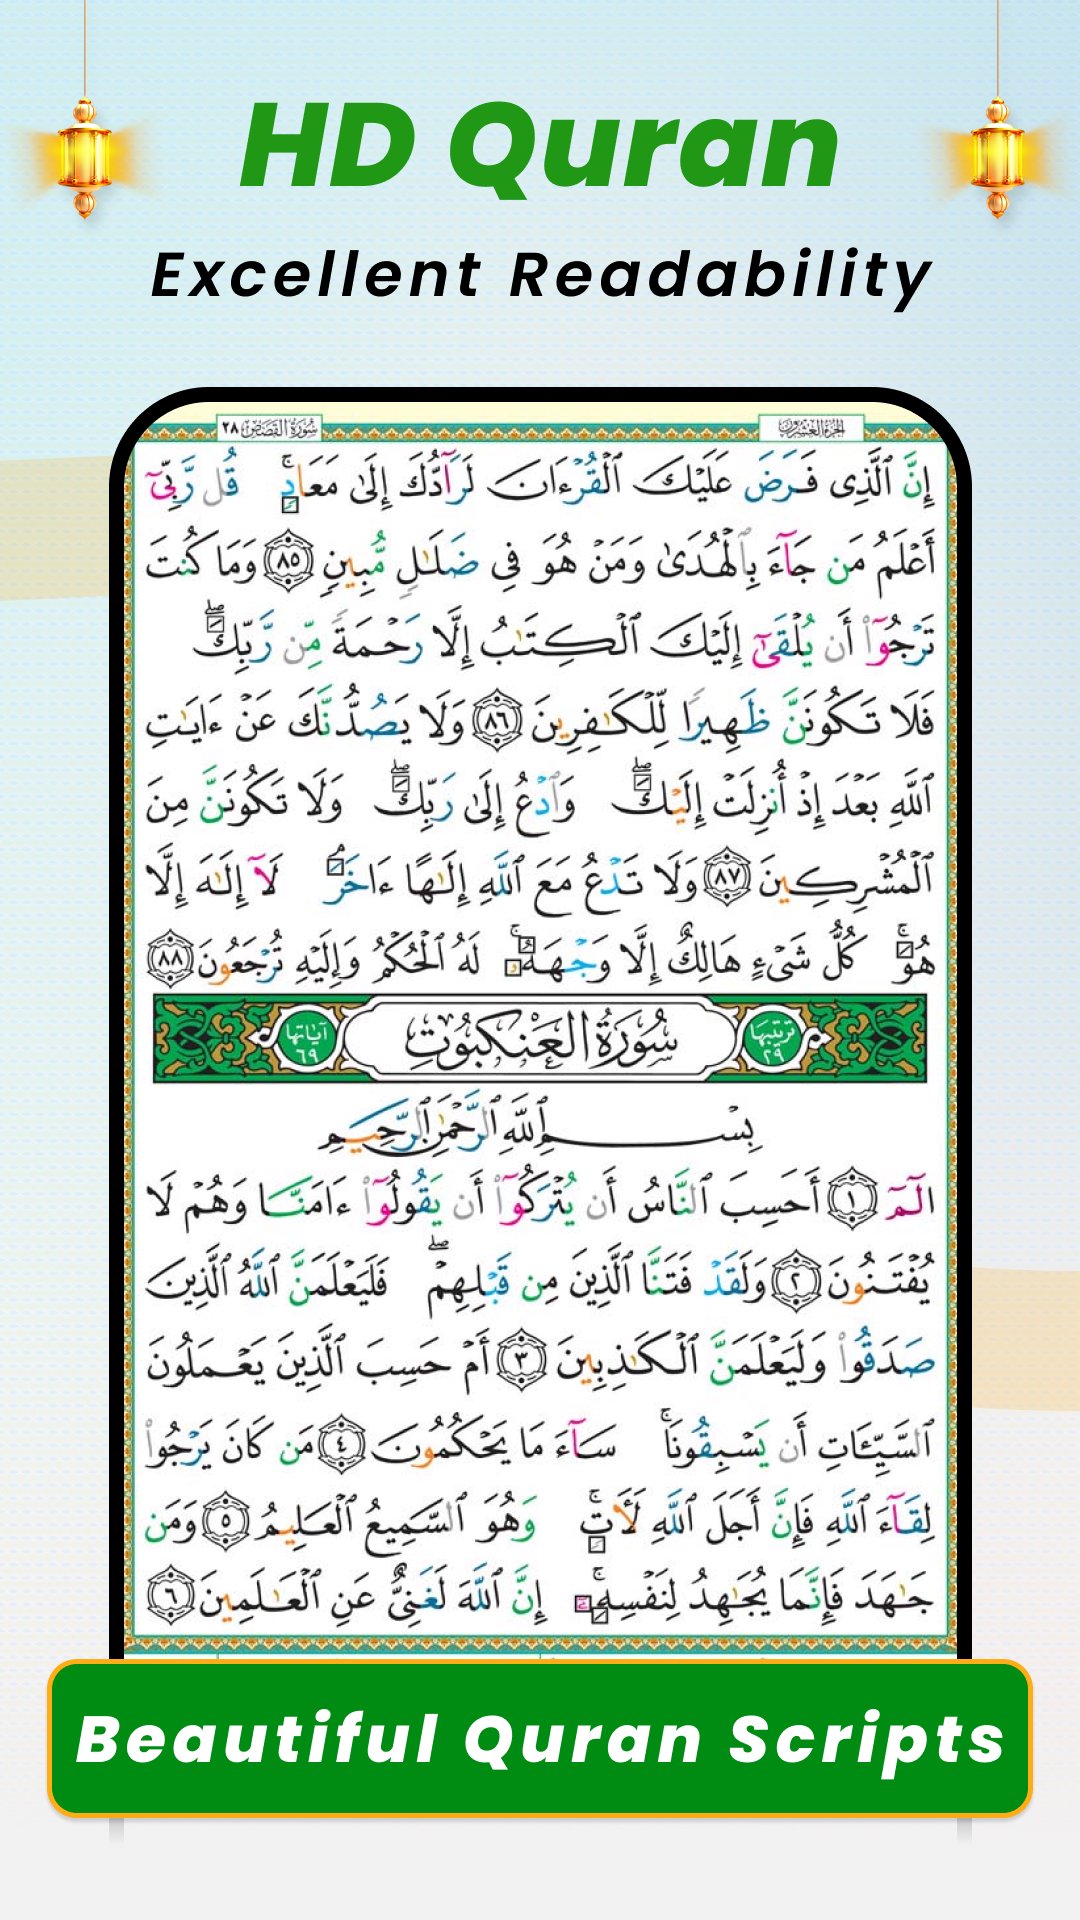 HD Quran
Excellent Readability
سُورَةُ القَصَصِ ٢٨
الجزءُ العِشْرُونَ
إِنَّ ٱلَّذِى فَرَضَ عَلَيْكَ ٱلْقُرْءَانَ لَرَآدُّكَ إِلَىٰ مَعَادٍۚ قُل رَّبِّىٓ
أَعْلَمُ مَن جَآءَ بِٱلْهُدَىٰ وَمَنْ هُوَ فِى ضَلَـٰلٍ مُّبِينٍ ٨٥ وَمَا كُنتَ
تَرْجُوٓا۟ أَن يُلْقَىٰٓ إِلَيْكَ ٱلْكِتَـٰبُ إِلَّا رَحْمَةً مِّن رَّبِّكَۖ
فَلَا تَكُونَنَّ ظَهِيرًا لِّلْكَـٰفِرِينَ ٨٦ وَلَا يَصُدُّنَّكَ عَنْ ءَايَـٰتِ
ٱللَّهِ بَعْدَ إِذْ أُنزِلَتْ إِلَيْكَۖ وَٱدْعُ إِلَىٰ رَبِّكَۖ وَلَا تَكُونَنَّ مِنَ
ٱلْمُشْرِكِينَ ٨٧ وَلَا تَدْعُ مَعَ ٱللَّهِ إِلَـٰهًا ءَاخَرَۘ لَآ إِلَـٰهَ إِلَّا
هُوَۚ كُلُّ شَىْءٍ هَالِكٌ إِلَّا وَجْهَهُۥۚ لَهُ ٱلْحُكْمُ وَإِلَيْهِ تُرْجَعُونَ ٨٨
تَرْتِيبُهَا ٢٩
سُورَةُ العَنْكَبُوتِ
آيَاتُهَا ٦٩
بِسْمِ ٱللَّهِ ٱلرَّحْمَـٰنِ ٱلرَّحِيمِ
الٓمٓ ١ أَحَسِبَ ٱلنَّاسُ أَن يُتْرَكُوٓا۟ أَن يَقُولُوٓا۟ ءَامَنَّا وَهُمْ لَا
يُفْتَنُونَ ٢ وَلَقَدْ فَتَنَّا ٱلَّذِينَ مِن قَبْلِهِمْۖ فَلَيَعْلَمَنَّ ٱللَّهُ ٱلَّذِينَ
صَدَقُوا۟ وَلَيَعْلَمَنَّ ٱلْكَـٰذِبِينَ ٣ أَمْ حَسِبَ ٱلَّذِينَ يَعْمَلُونَ
ٱلسَّيِّـَٔاتِ أَن يَسْبِقُونَاۚ سَآءَ مَا يَحْكُمُونَ ٤ مَن كَانَ يَرْجُوا۟
لِقَآءَ ٱللَّهِ فَإِنَّ أَجَلَ ٱللَّهِ لَـَٔاتٍۚ وَهُوَ ٱلسَّمِيعُ ٱلْعَلِيمُ ٥ وَمَن
جَـٰهَدَ فَإِنَّمَا يُجَـٰهِدُ لِنَفْسِهِۦٓۚ إِنَّ ٱللَّهَ لَغَنِىٌّ عَنِ ٱلْعَـٰلَمِينَ ٦
Beautiful Quran Scripts